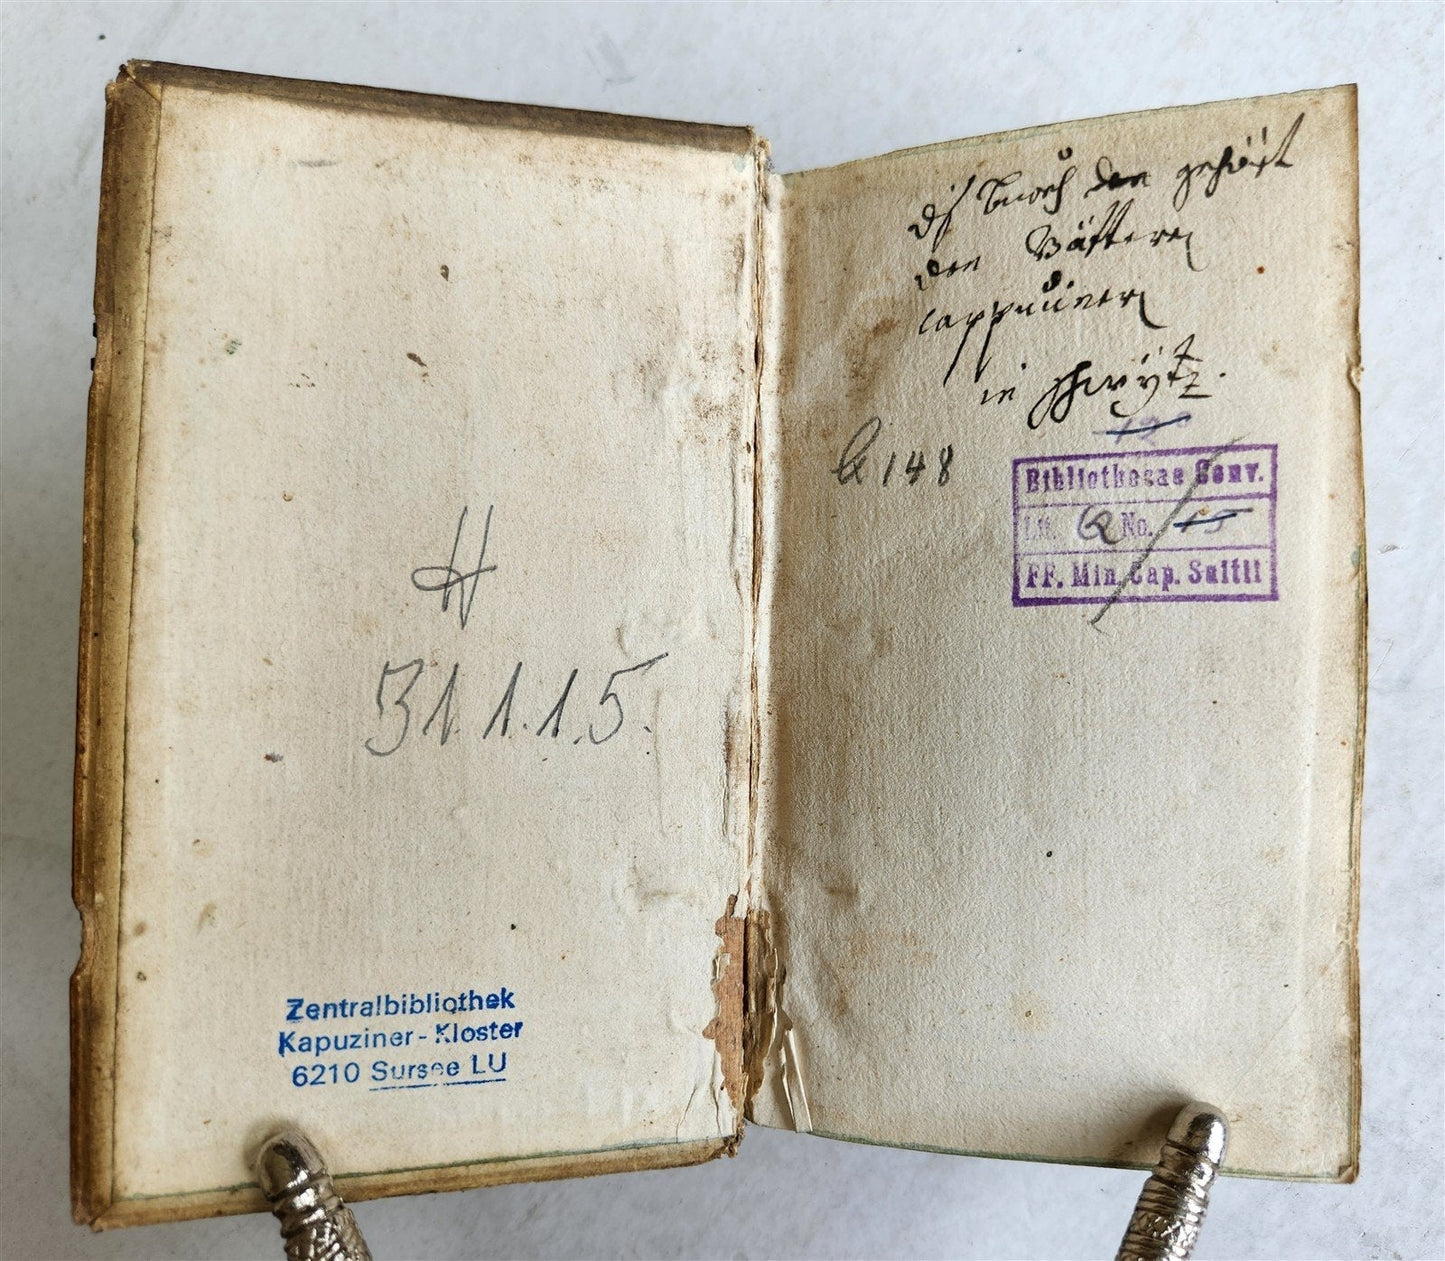 H
31.1.1.5.
Zentralbibliothek
Kapuziner-Kloster
6210 Sursee LU
diß Buoch den gehört
den Vätteren
cappuciner
in Schwÿtz.
12
Q 148
Bibliothecae Conv.
Litt. Q No. 15
FF. Min. Cap. Suitii